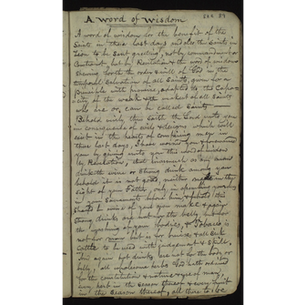 A Word of Wisdom
A word of wisdom for the benefit of the
Saints in these last days and also the Saints in
to be sent greeting, not by commandment or
Constraint, but by Revelation & the word of wisdom
Shewing forth the order & will of God in the
temporal Salvation of all Saints, given for a
principle with promise, adapted to the Capacity
of the weak & the weakest of all Saints
who are or can be called Saints
Behold verily thus saith the Lord unto you
in consequence of evils & designs which will
exist in the hearts of conspiring men in
these last days, I have warned you & forewarn
you by giving unto you this word of wisdom
by Revelation, that inasmuch as any man
drinketh wine or Strong drink among you
behold it is not good, neither in the
sight of your Father, only in
your Sacraments before him,
should be wine of your make & again
Strong drinks are not for the belly, but for
the washing of your bodies, & Tobacco is
not for man but is for & all sick
Cattle to be used with judgement & Skill,
and again hot drinks are not for the body or
belly, all wholesome herbs God hath ordained
for the constitution & nature & use of man,
every herb in the season thereof & every fruit
in the Season thereof, all these to be